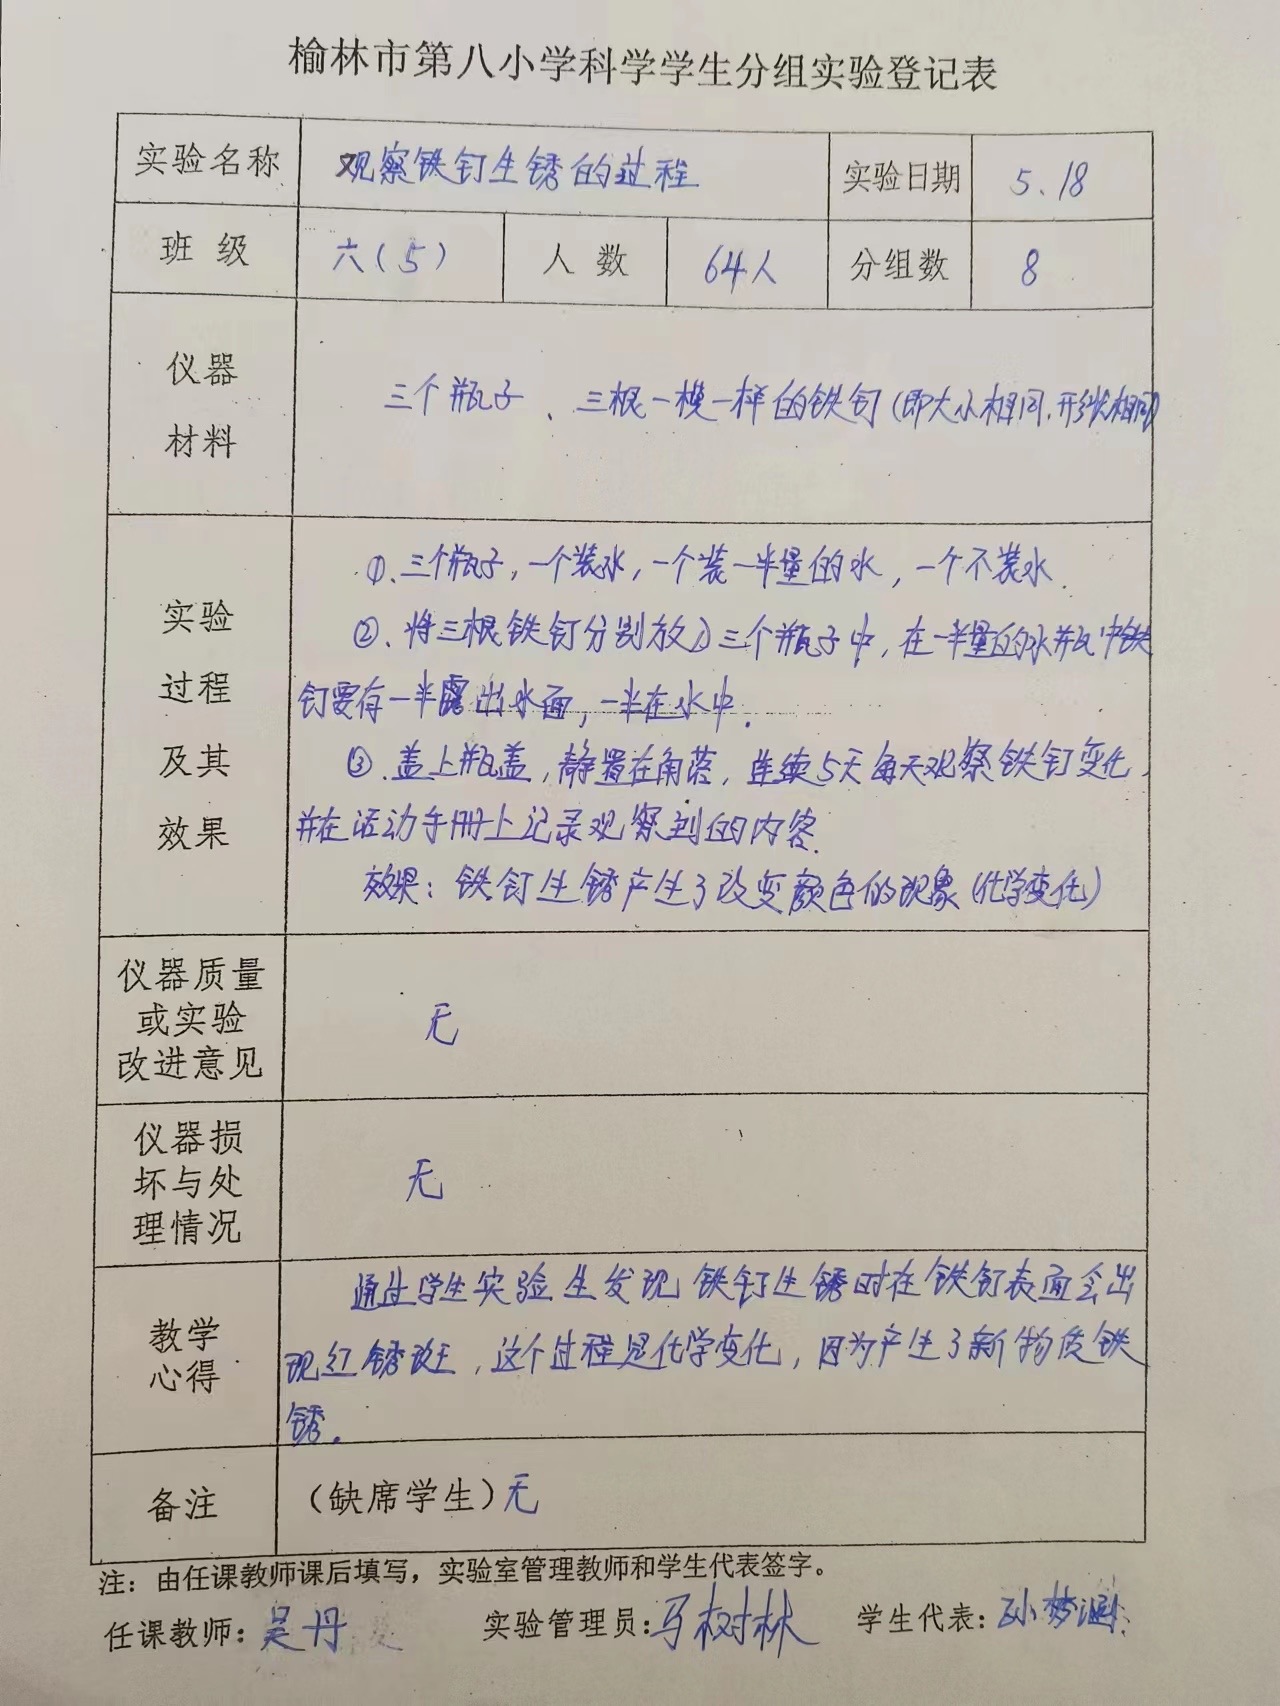 榆林市第八小学科学学生分组实验登记表
实验名称 观察铁钉生锈的过程 实验日期 5.18
班级 六(5) 人数 64人 分组数 8
仪器
材料
三个瓶子、三根一模一样的铁钉(即大小相同,形状相同)
实验
过程
及其
效果
①.三个瓶子,一个装水,一个装一半量的水,一个不装水.
②.将三根铁钉分别放入三个瓶子中,在一半量的水瓶中铁
钉要有一半露出水面,一半在水中.
③.盖上瓶盖,静置在角落,连续5天每天观察铁钉变化,
并在活动手册上记录观察到的内容.
效果:铁钉生锈产生了改变颜色的现象(化学变化)
仪器质量
或实验
改进意见
无
仪器损
坏与处
理情况
无
教学
心得
通过学生实验生发现铁钉生锈时在铁钉表面会出
现红锈斑,这个过程是化学变化,因为产生了新物质铁
锈。
备注 (缺席学生)无
注:由任课教师课后填写,实验室管理教师和学生代表签字。
任课教师:吴丹 实验管理员:马树林 学生代表:孙梦涵